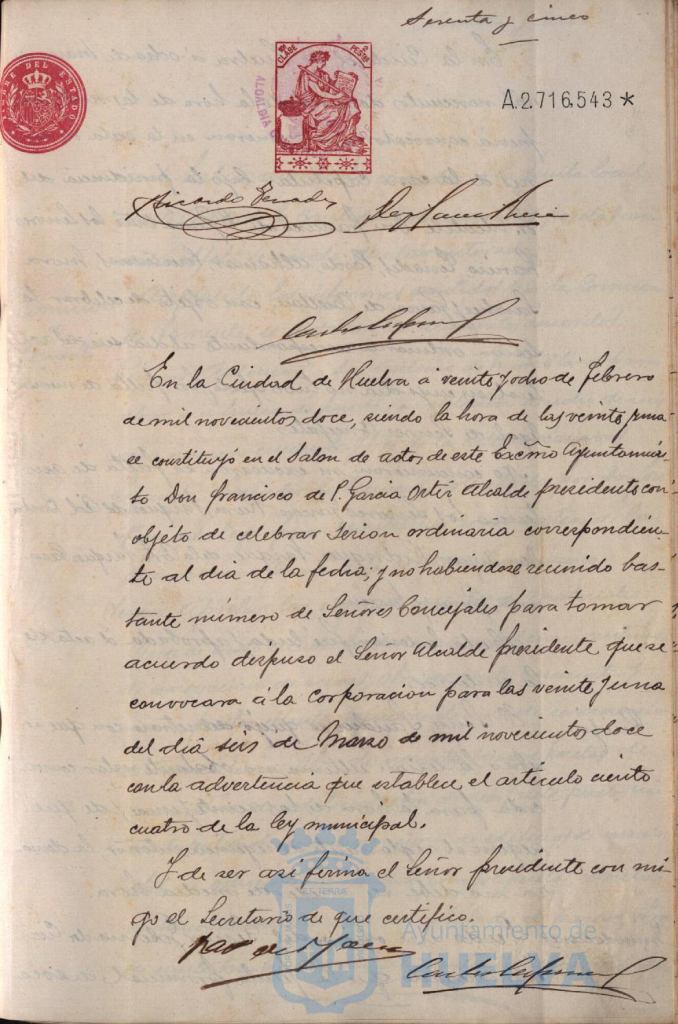 Sesenta y cinco
TIMBRE DEL ESTADO
CLASE PESETA
ALCALDIA
A.2.716.543*
Ricardo
En la Ciudad de Huelva á veinte y ocho de febrero
de mil novecientos doce, siendo la hora de las veinte y una
se constituyó en el Salon de actos de este Excmo Ayuntamien-
to Don Francisco de P. Garcia Ortiz Alcalde presidente con
objeto de celebrar sesion ordinaria correspondien-
te al dia de la fecha; y no habiendose reunido bas-
tante número de Señores Concejales para tomar
acuerdo dispuso el Señor Alcalde presidente que se
convocara á la corporacion para las veinte y una
del dia seis de Marzo de mil novecientos doce
con la advertencia que establece el articulo ciento
cuatro de la ley municipal.
Y de ser asi firma el Señor presidente con mi-
go el Secretario de que certifico.
Ayuntamiento de
HUELVA